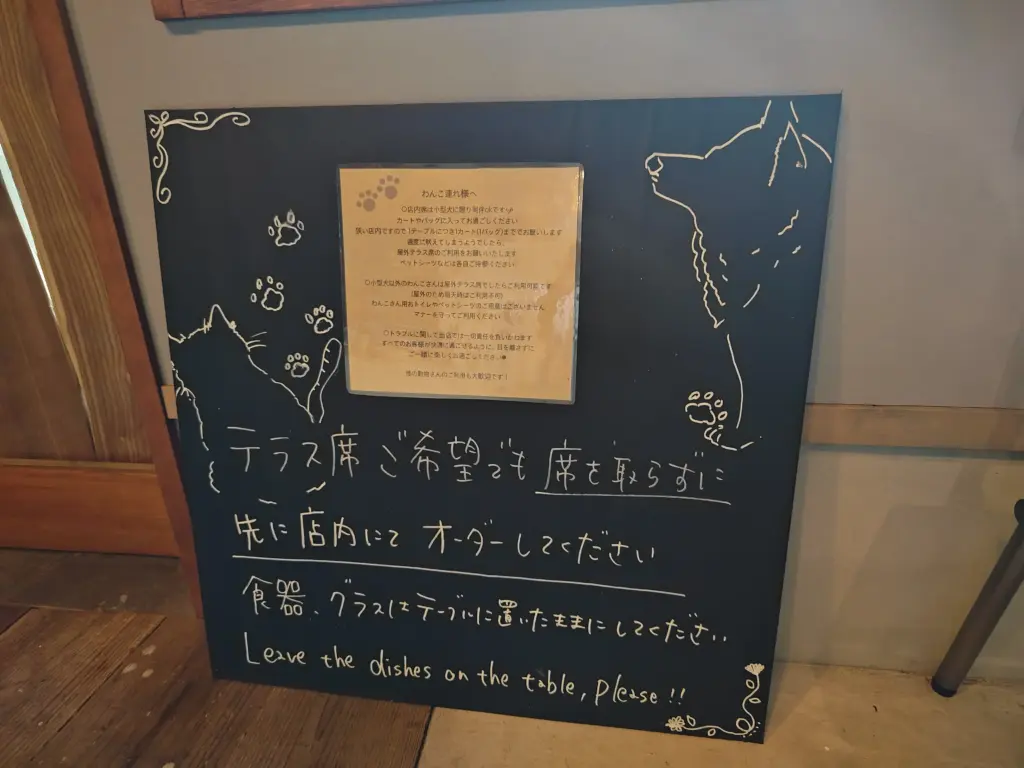 わんこ連れ様へ
○店内席は小型犬に限り同伴OKです
カートやバッグに入ってお過ごしください
狭い店内ですので1テーブルにつき1カート(1バッグ)まででお願いします
過度に吠えてしまうようでしたら、
屋外テラス席のご利用をお願いいたします
ペットシーツなどは各自ご持参ください
○小型犬以外のわんこさんは屋外テラス席でしたらご利用可能です
(屋外のため雨天時はご利用不可)
わんこさん用おトイレやペットシーツのご用意はございません
マナーを守ってご利用ください
○トラブルに関して当店では一切責任を負いかねます
すべてのお客様が快適に過ごせるように、目を離さずに
ご一緒に楽しくお過ごしください
他の動物さんのご利用も大歓迎です!
テラス席 ご希望でも 席を取らずに
先に店内にて オーダーしてください
食器、グラスはテーブルに置いたままにしてください
Leave the dishes on the table, please!!